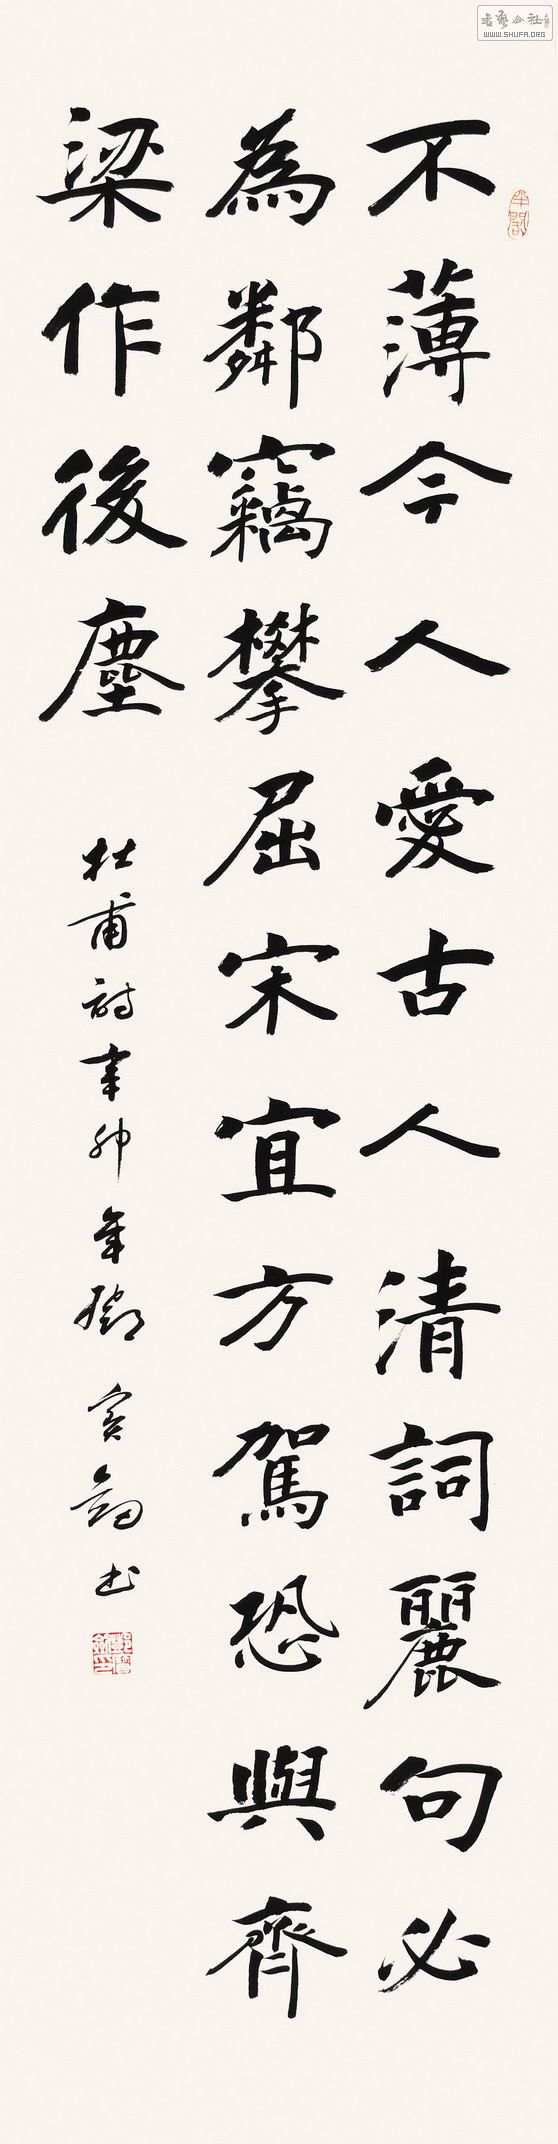 不薄今人愛古人清詞麗句必
為鄰竊攀屈宋宜方駕恐與齊
梁作後塵
杜甫詩辛卯年鄧寶劍书
書藝公社
WWW.SHUFA.ORG